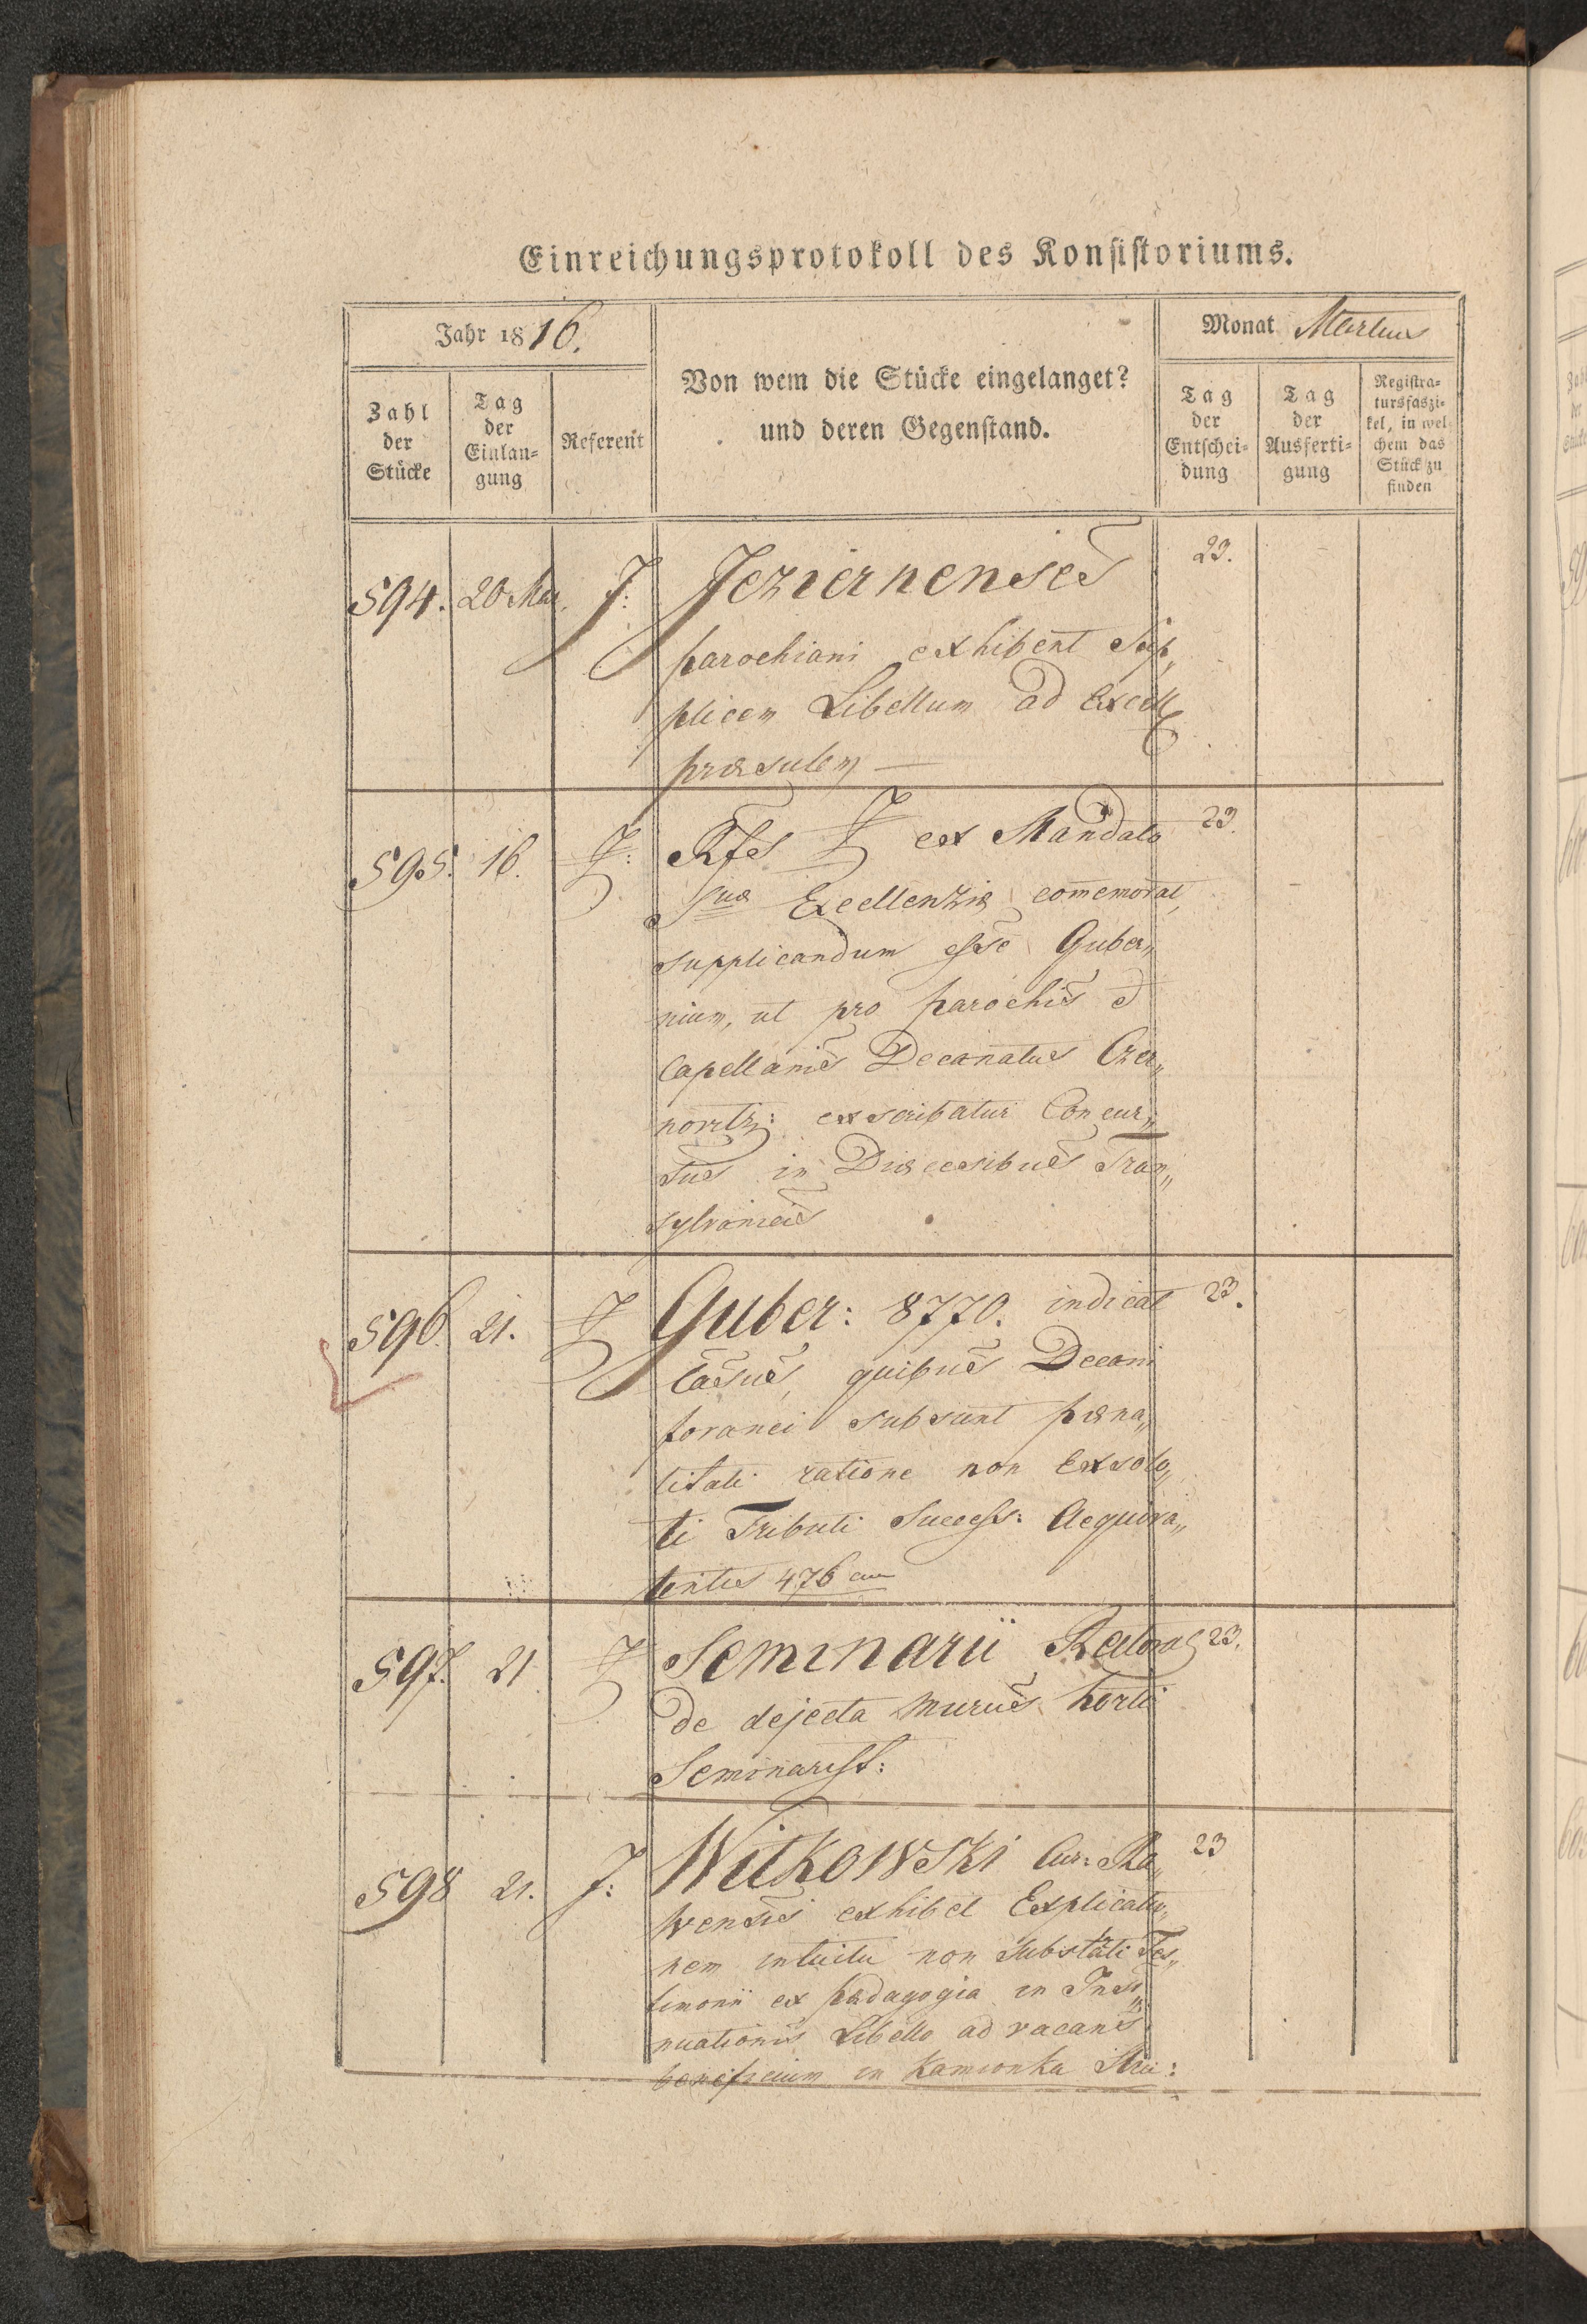 Einreichungsprotokoll des Konsistoriums.
Jahr 1816.
Von wem die Stücke eingelanget?
und deren Gegenstand.
Monat Martius
Zahl
der
Stücke
Tag
der
Einlan=
gung
Referent
Tag
der
Entschei=
dung
Tag
der
Ausferti=
gung
Registra=
tursfaszi=
kel, in wel
chem das
Stück zu
finden
594. 20 Mar. J: Jeziernenses 23.
parochiani exhibent Sup„
plicem Libellum ad Excell
præsulem —
595. 16. J: Rfs J ex Mandato 23.
Suæ Excellenziæ comemorat,
supplicandum esse Guber„
nium, ut pro parochis et
Capellanis Decanatus Czer„
novitz: exscribatur Concur„
sus in Diæcesibus Tran„
sylvanicis
596. 21. J Guber: 8770. indicat 23.
Casus, quibus Decani
foranei subsunt pæna„
litati ratione non Exsolu„
ti Tributi Success: Aequiva„
lentis 476
597. 21 J Seminarii Rector 23.
de dejecta murus horti
Seminarist:
598 21. J: Witkowski Cur: Ra„ 23
wensis exhibet Explicatio„
nem intuitu non Substrati Tes„
timonii ex pædagogia in Insi„
nuationis Libello ad vacans
beneficium in Kamionka Stru: